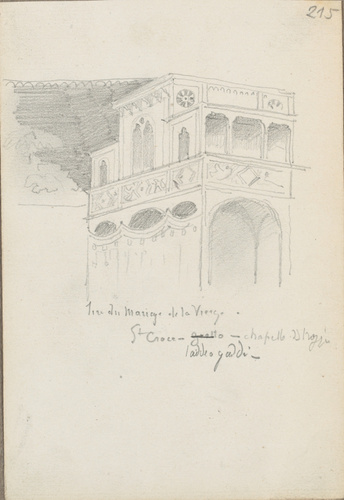 215
du Mariage de la Vierge.
Sta Croce – giotto – chapelle
Taddeo gaddi –